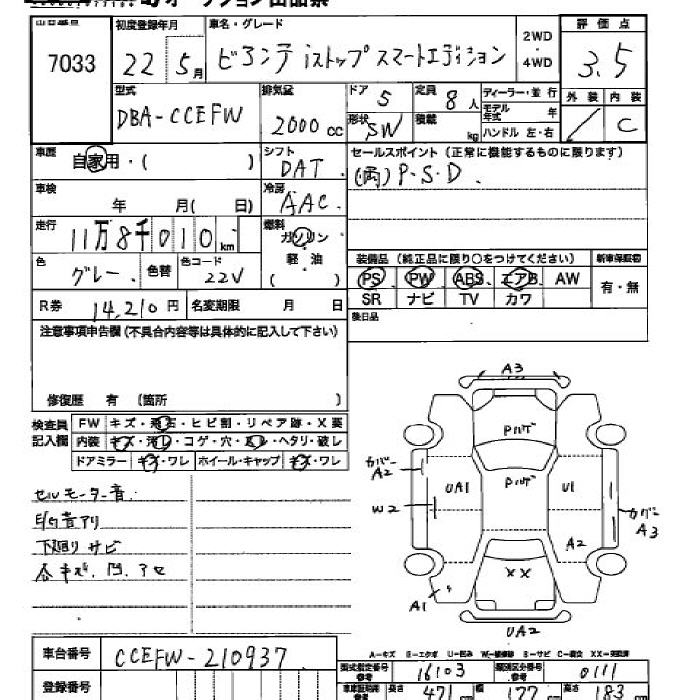 オークション出品票
出品番号 初度登録年月 車名・グレード 2WD・4WD 評価点
7033 22年5月 ビアンテ iストップ スマートエディション 3.5
型式 排気量 ドア 5 定員 8人 ディーラー・並行 外装 内装
DBA-CCEFW 2000cc 形状 SW 積載 kg モデル年式 年 C
ハンドル 左・右
車歴 自家用・( ) シフト DAT セールスポイント(正常に機能するものに限ります)
車検 年 月( 日) 冷房 AAC (両)P・S・D.
走行 11万8千010km 燃料 ガソリン 軽・油 ( )
装備品(純正品に限り○をつけてください) 新車保証書
色 グレー. 色替 色コード 22V
PS PW ABS エアB AW 有・無
SR ナビ TV カワ
R券 14,210円 名変期限 月 日 後日品
注意事項申告欄(不具合内容等は具体的に記入して下さい)
修復歴 有 (箇所 )
検査員記入欄 FW キズ・飛石・ヒビ割・リペア跡・X要
内装 キズ・汚レ・コゲ・穴・ ・ヘタリ・破レ
ドアミラー キズ・ワレ ホイール・キャップ キズ・ワレ
セルモーター音.
下廻りサビ
各キズ.凹.アセ
A3
Pハゲ
Pハゲ
カバーA2
UA1
U1
W2
カバーA3
A2
XX
A1
UA2
A-キズ E-エクボ U-凹み W-補修跡 S-サビ C-腐食 XX-交換済
車台番号 CCEFW-210937
型式指定番号 参考 16103 類別区分番号 参考 0111
登録番号 長さ 471cm 幅 177cm 高さ 183cm